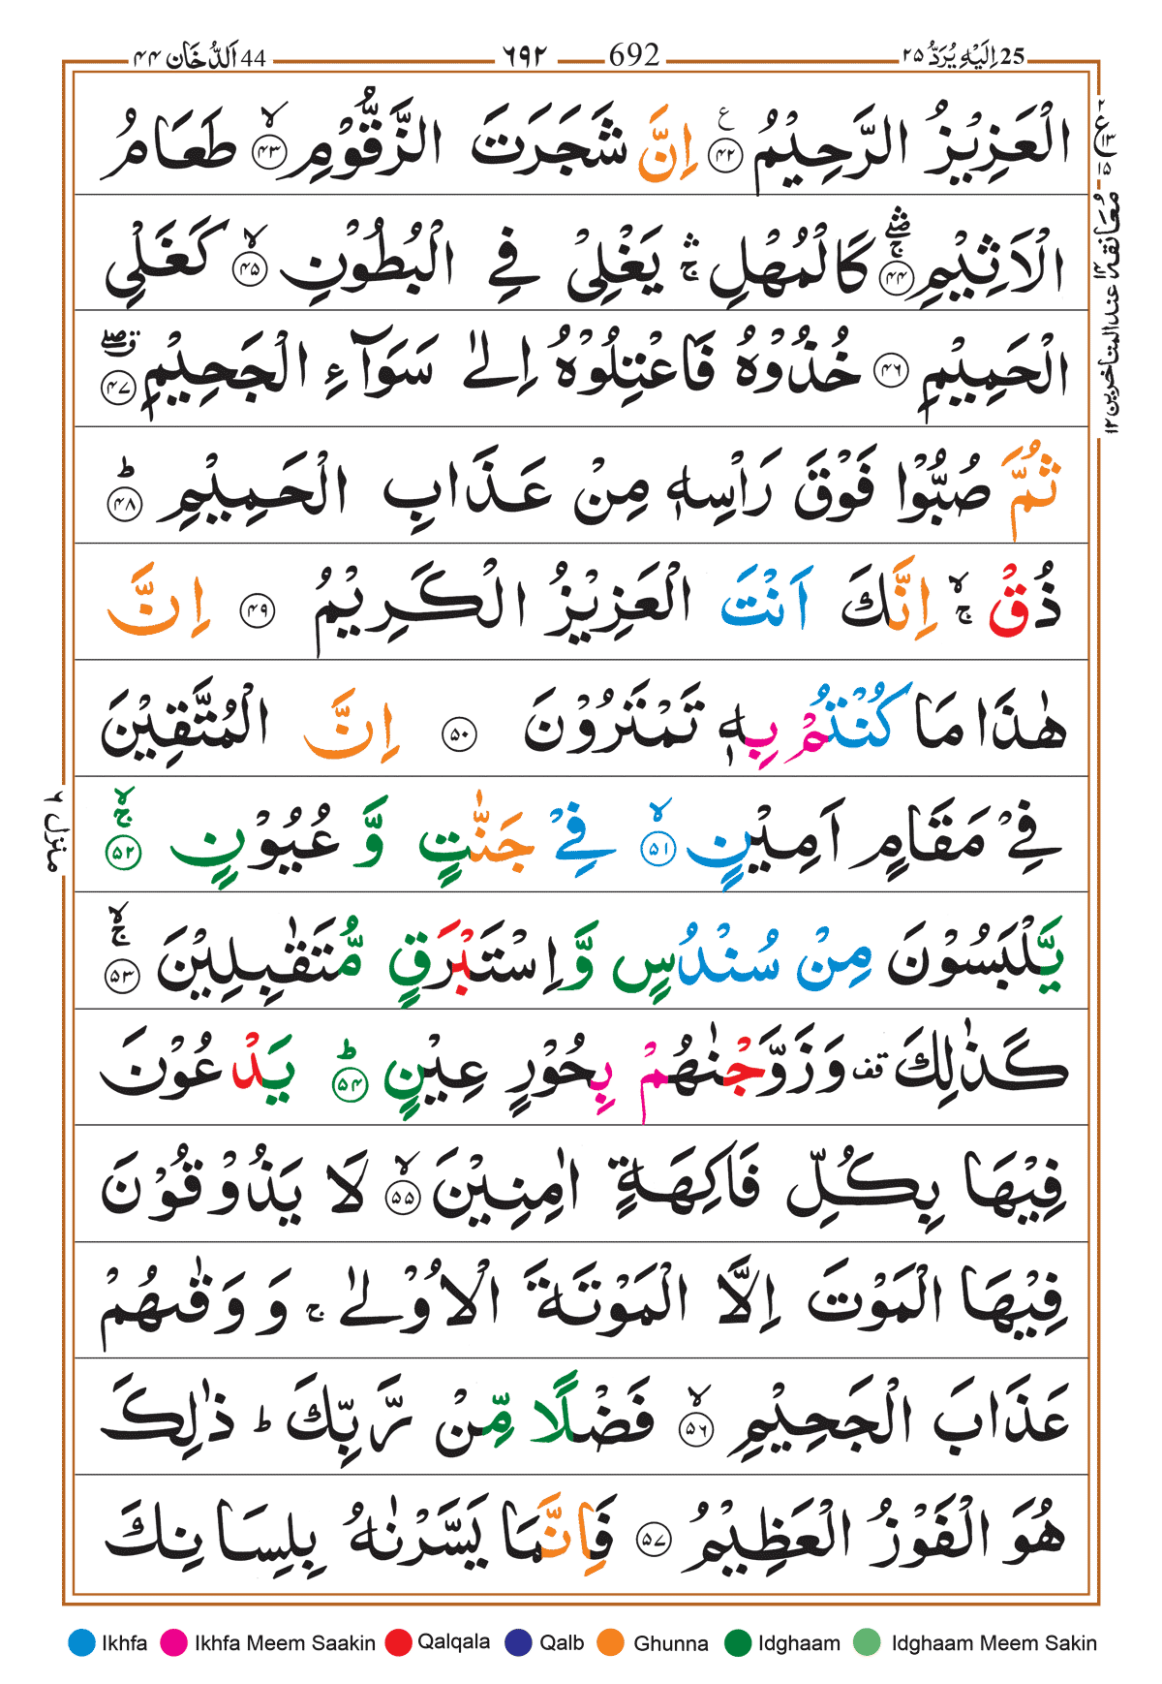 44 اَلدُّخَان ۴۴ ۶۹۲ 692 25 اِلَيْهِ يُرَدُّ ۲۵
الْعَزِيْزُ الرَّحِيْمُ ۴۲ ع اِنَّ شَجَرَتَ الزَّقُّوْمِ ۴۳ ۙ طَعَامُ
الْاَثِيْمِ ۴۴ ۛۖۚ كَالْمُهْلِ ۛۚ يَغْلِىْ فِى الْبُطُوْنِ ۴۵ ۙ كَغَلْىِ
الْحَمِيْمِ ۴۶ خُذُوْهُ فَاعْتِلُوْهُ اِلٰى سَوَآءِ الْجَحِيْمِ ۴۷ ۖق
ثُمَّ صُبُّوْا فَوْقَ رَاْسِهٖ مِنْ عَذَابِ الْحَمِيْمِ ۴۸ ؕ
ذُقْ ۚۙ اِنَّكَ اَنْتَ الْعَزِيْزُ الْكَرِيْمُ ۴۹ اِنَّ
هٰذَا مَا كُنْتُمْ بِهٖ تَمْتَرُوْنَ ۵۰ اِنَّ الْمُتَّقِيْنَ
فِىْ مَقَامٍ اَمِيْنٍ ۵۱ ۙ فِىْ جَنّٰتٍ وَّ عُيُوْنٍ ۵۲ ۚۙ
يَّلْبَسُوْنَ مِنْ سُنْدُسٍ وَّاِسْتَبْرَقٍ مُّتَقٰبِلِيْنَ ۵۳ ۚۙ
كَذٰلِكَ قف وَزَوَّجْنٰهُمْ بِحُوْرٍ عِيْنٍ ۵۴ ؕ يَدْعُوْنَ
فِيْهَا بِكُلِّ فَاكِهَةٍ اٰمِنِيْنَ ۵۵ ۙ لَا يَذُوْقُوْنَ
فِيْهَا الْمَوْتَ اِلَّا الْمَوْتَةَ الْاُوْلٰى ۚ وَ وَقٰىهُمْ
عَذَابَ الْجَحِيْمِ ۵۶ ۙ فَضْلًا مِّنْ رَّبِّكَ ؕ ذٰلِكَ
هُوَ الْفَوْزُ الْعَظِيْمُ ۵۷ فَاِنَّمَا يَسَّرْنٰهُ بِلِسَانِكَ
مُعَانقة ۱۴ عند المتاخرين ۱۲
منزل ۶
Ikhfa Ikhfa Meem Saakin Qalqala Qalb Ghunna Idghaam Idghaam Meem Sakin